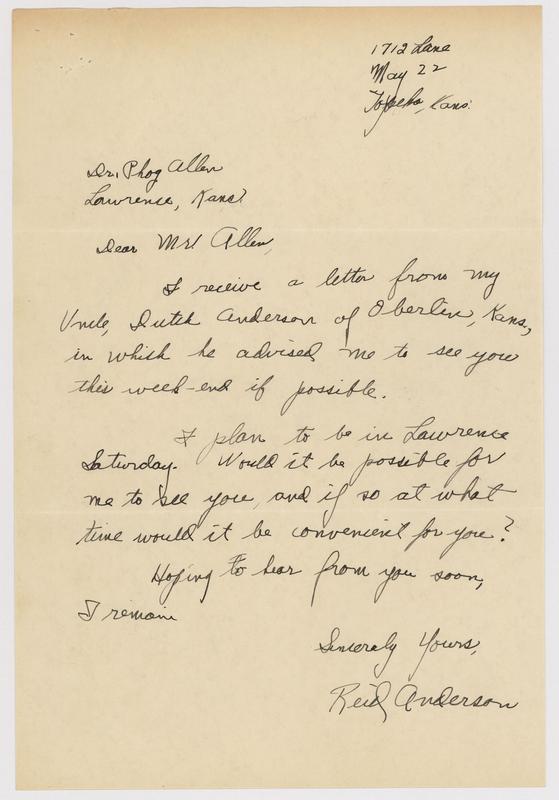 1712 Lane
May 22
Topeka, Kans.
Dr. Phog Allen
Lawrence, Kans.
Dear Mr. Allen,
I receive a letter from my
Uncle, Dutch Anderson of Oberlin, Kans.,
in which he advised me to see you
this week-end if possible.
I plan to be in Lawrence
Saturday. Would it be possible for
me to see you, and if so at what
time would it be convenient for you?
Hoping to hear from you soon,
I remain
Sincerely Yours,
Reid Anderson